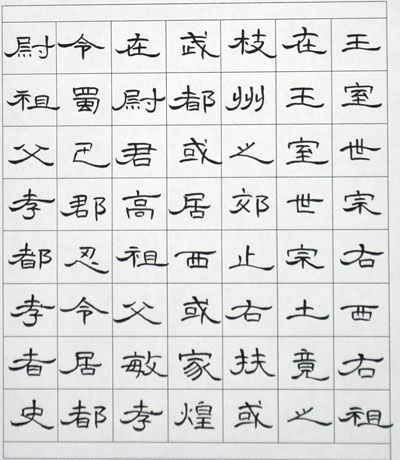 王室世宗右西右祖
在王室世宗土竟之
枝州之郊止右扶或
武都或居西或家煌
在尉君高祖父敏孝
令蜀巴郡忍令居都
尉祖父孝都孝者史